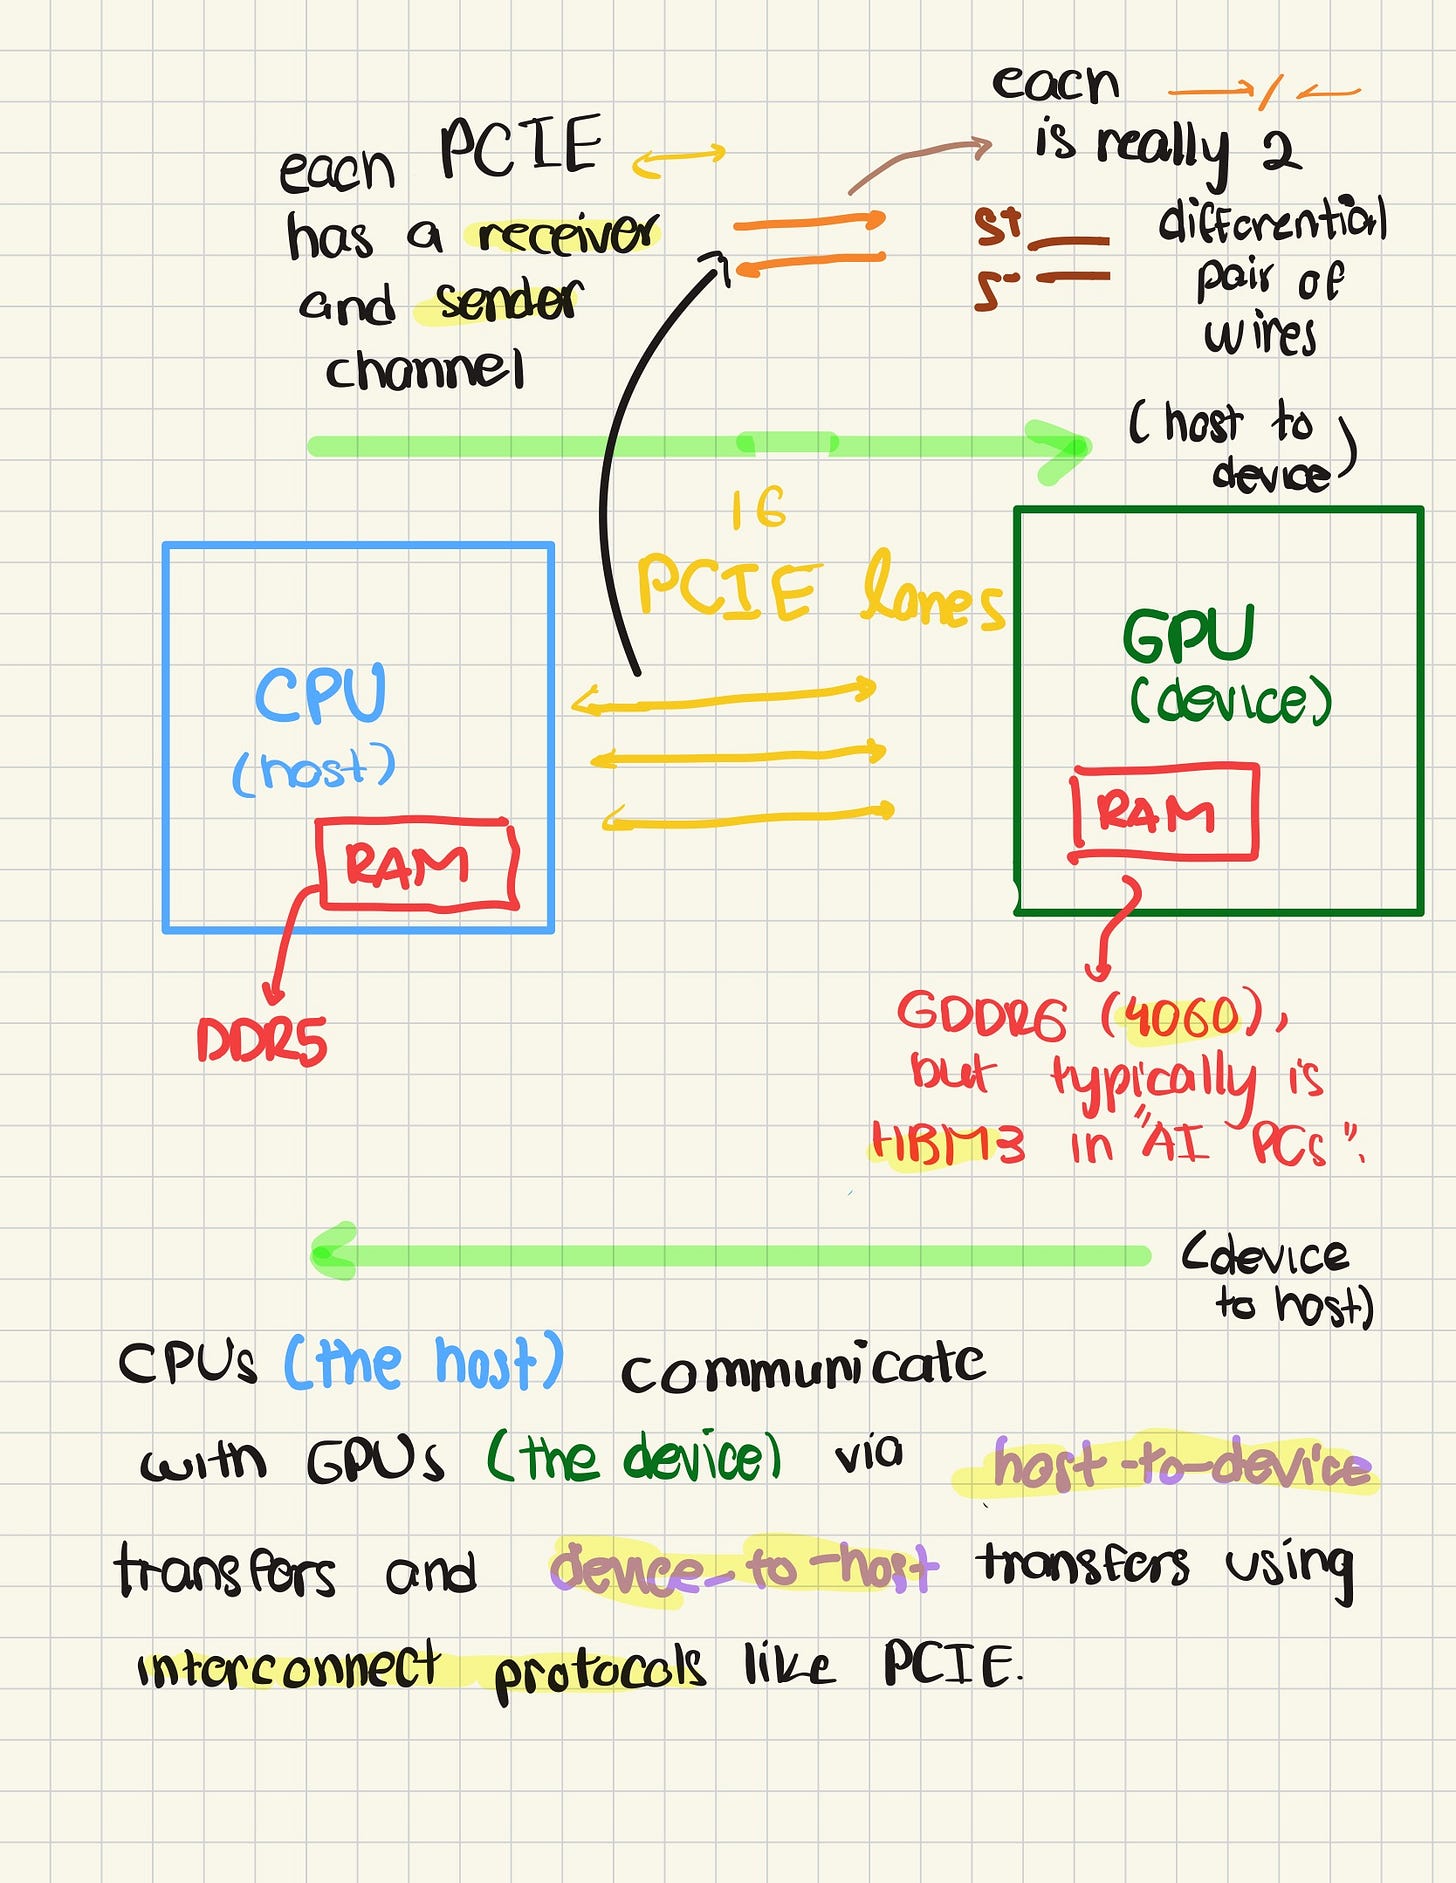 each PCIE
has a receiver
and sender
channel
each
is really 2
differential
pair of
wires
S+
S-
(host to
device)
16
PCIE lanes
CPU
(host)
RAM
DDR5
GPU
(device)
RAM
GDDR6 (4060),
but typically is
HBM3 in "AI PCs".
(device
to host)
CPUs (the host) communicate
with GPUs (the device) via host-to-device
transfers and device-to-host transfers using
interconnect protocols like PCIE.